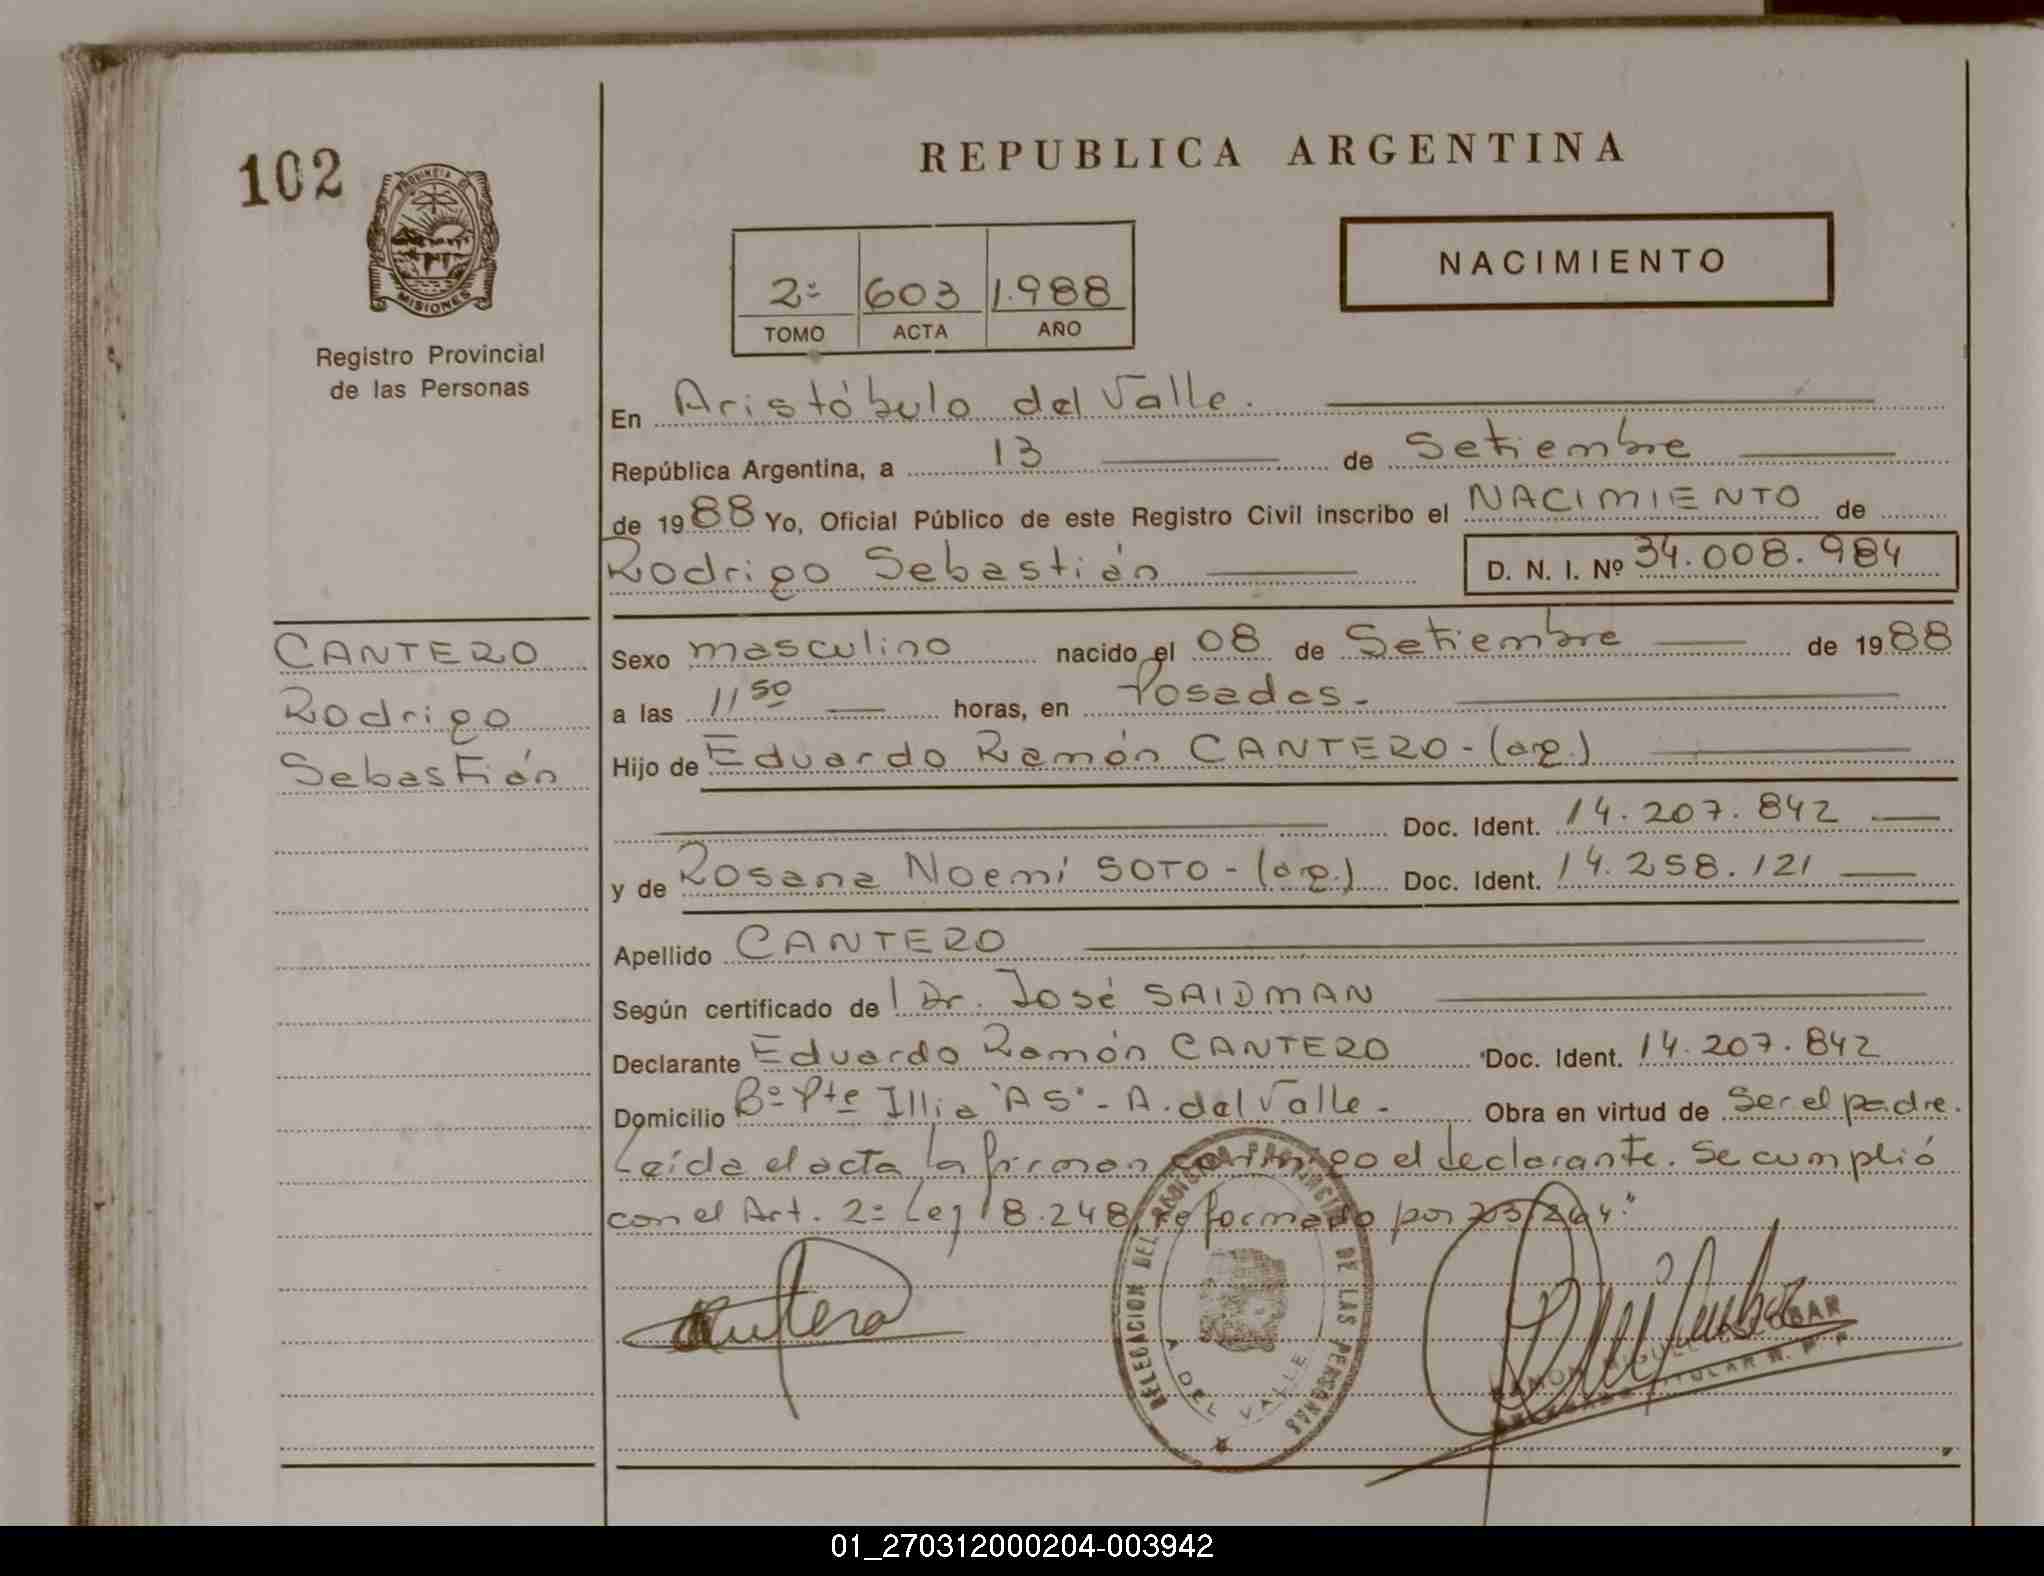 102
PROVINCIA DE
MISIONES
Registro Provincial
de las Personas
CANTERO
Rodrigo
Sebastián
REPUBLICA ARGENTINA
2º 603 1.988
TOMO ACTA AÑO
NACIMIENTO
En Aristóbulo del Valle.
República Argentina, a 13 de Setiembre
de 1988 Yo, Oficial Público de este Registro Civil inscribo el NACIMIENTO de
Rodrigo Sebastián D. N. I. Nº 34.008.984
Sexo masculino nacido el 08 de Setiembre de 1988
a las 11 50 horas, en Posadas.
Hijo de Eduardo Ramón CANTERO - (arg.)
Doc. Ident. 14.207.842
y de Rosana Noemí SOTO - (arg.) Doc. Ident. 14.258.121
Apellido CANTERO
Según certificado de l Dr. José SAIDMAN
Declarante Eduardo Ramón CANTERO Doc. Ident. 14.207.842
Domicilio Bº Pte Illia "A5" - A. del Valle - Obra en virtud de Ser el padre.
Leída el acta la firman conmigo el declarante. Se cumplió
con el Art. 2º Ley 18.248, reformado por 23264"
DELEGACION DEL REGISTRO PROVINCIAL DE LAS PERSONAS
A DEL VALLE
RAMON MIGUEL
TITULAR R. P. P.
01_270312000204-003942